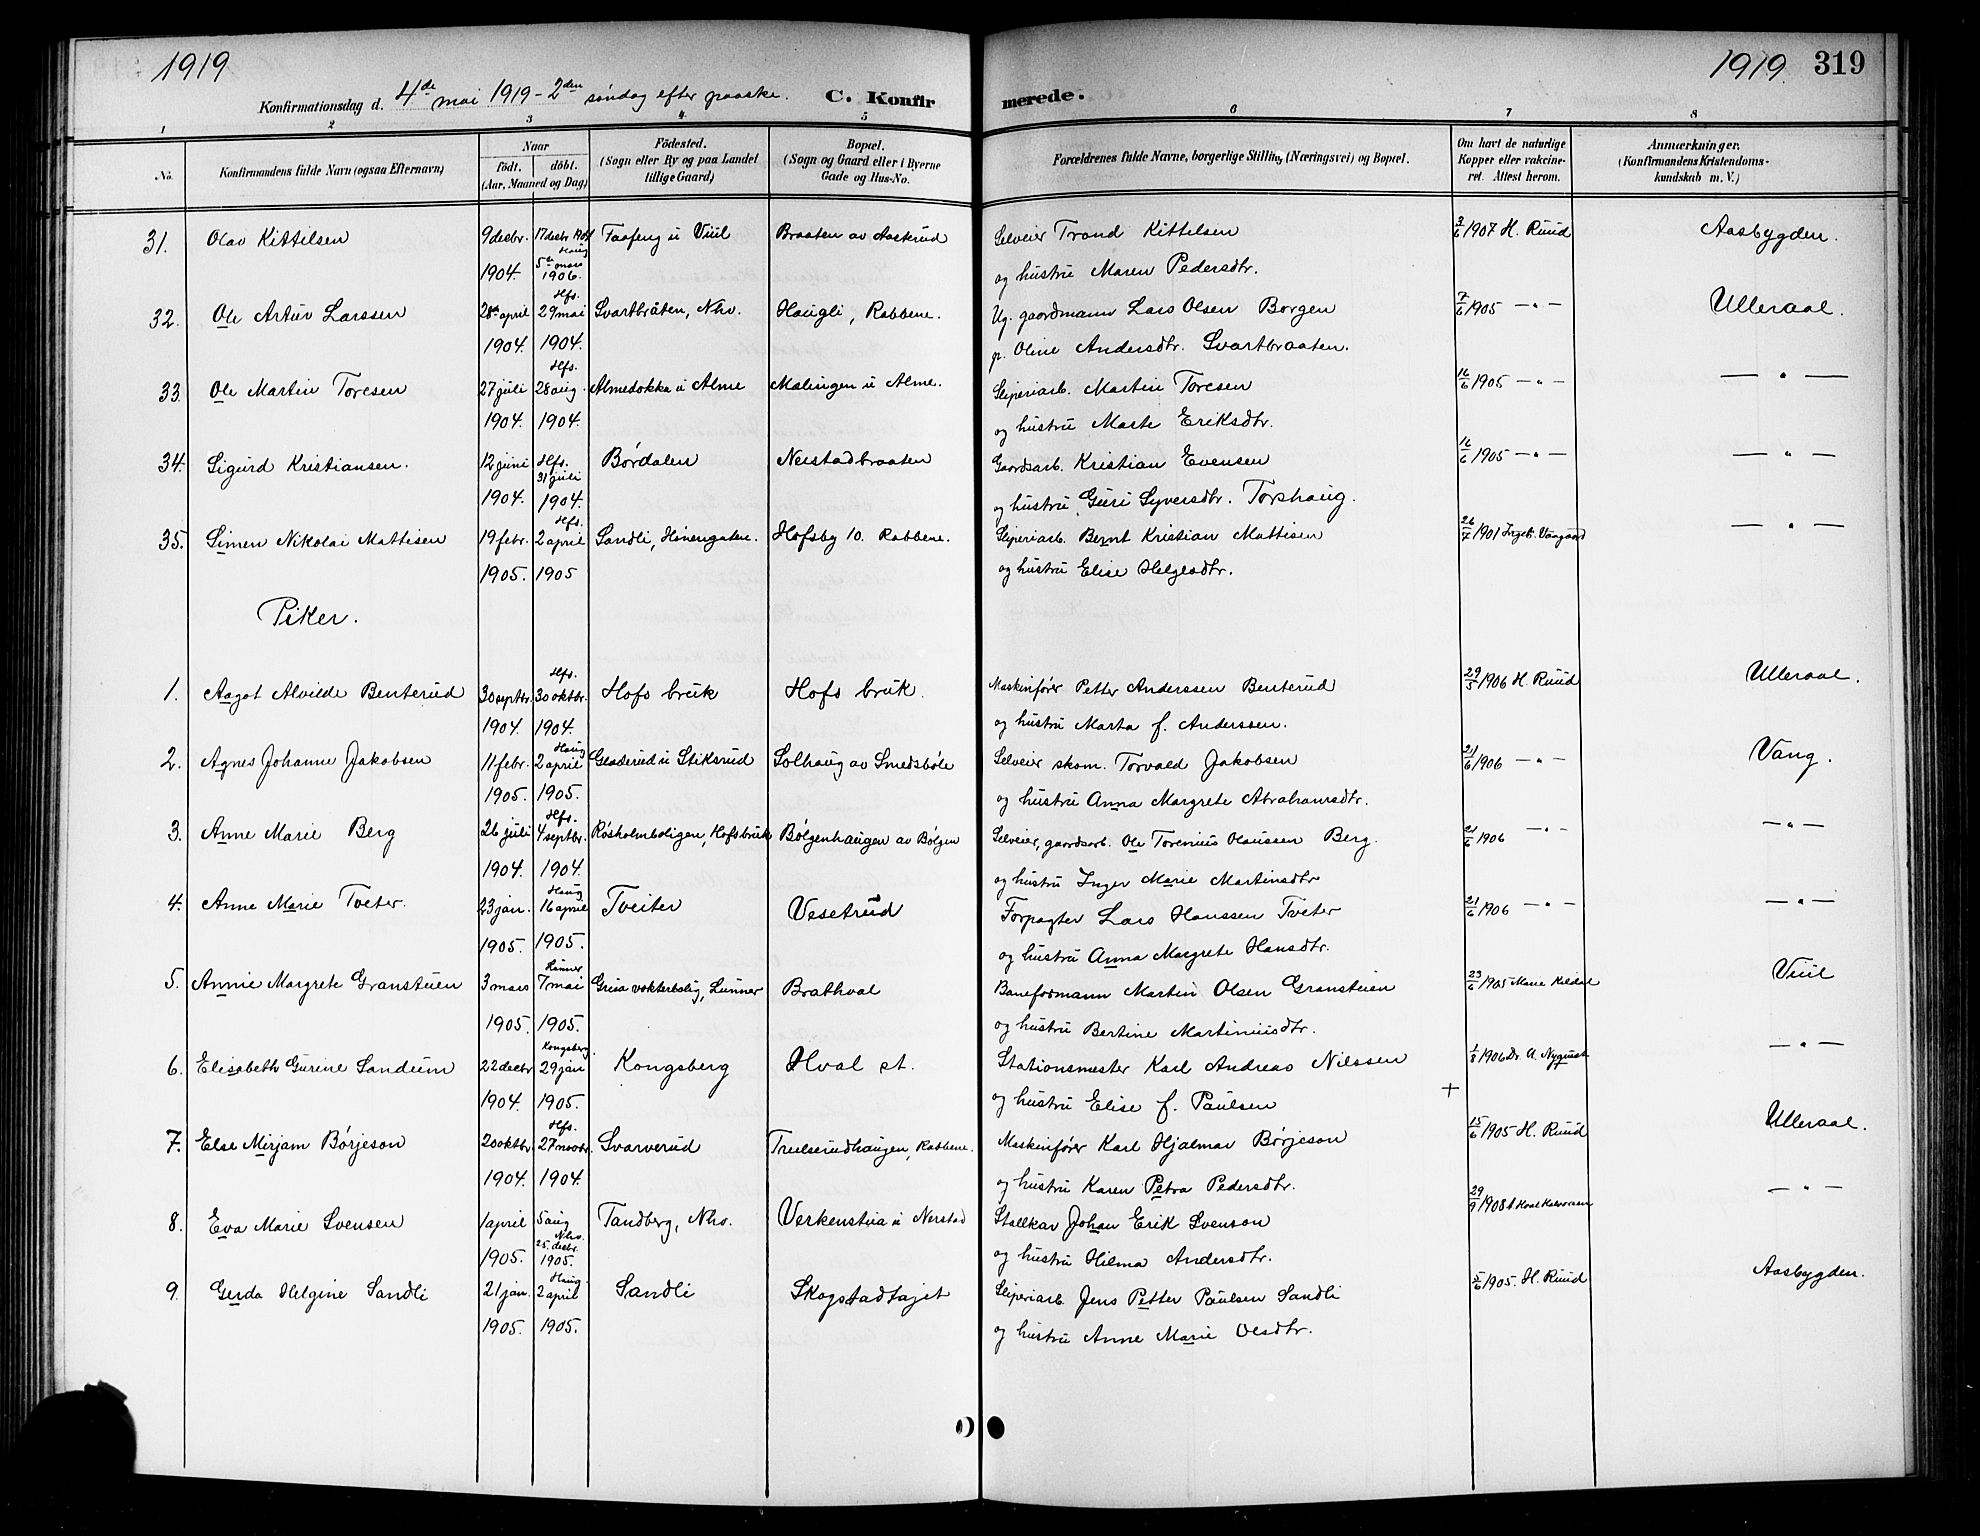 1919
1919. 319
Konfirmationsdag d. 4de mai 1919 - 2den søndag efter paaske. C. Konfirmerede.
1 2 3 4 5 6 7 8
No. Konfirmandens fulde Navn (ogsaa Efternavn) Naar født. døbt. (Aar, Maaned og Dag) Födested. (Sogn eller By og paa Landet tillige Gaard) Bopæl. (Sogn og Gaard eller i Byerne Gade og Hus-No. Forældrenes fulde Navne, borgerlige Stilling (Næringsvei) og Bopæl. Om havt de naturlige Kopper eller vakcineret. Attest herom. Anmærkninger. (Konfirmandens Kristendomskundskab m. V.)
31. Olav Kittilsen 9 decbr. 17 decbr Faafeng u Viul Braaten av Aaskrud Selveier Trond Kittelsen 3/6 1907 H. Ruud Aasbygden.
1904. Haug 5te mars 1906. og hustru Maren Pedersdtr.
32. Ole Artur Larssen 28de april Hfs. 29 mai Svartbråten, Nhv. Haugli, Rabbene. Ug. gaardmann Lars Olsen Borgen 7/6 1905 — " — Ulleraal.
1904. 1904. p. Oline Andersdtr. Svartbraaten.
33. Ole Martin Toresen 27 juli Hfs. 28 aug. Almedokka u Alme Malingen u Alme. Sliperiarb. Martin Toresen 16/6 1905 — " — — " —
1904. 1904. og hustru Marte Eriksdtr.
34. Sigurd Kristiansen. 12 juni Hfs. 31 juli Børdalen Nerstadbraaten Gaardsarb. Kristian Evensen 16/6 1905 — " — — " —
1904. 1904. og hustru Guri Syversdtr. Torshaug.
35. Simen Nikolai Mattisen 19 febr. Hfs. 2 april Sandli, Hønengaten. Hofsby 10. Rabbene. Sliperiarb. Bernt Kristian Mattisen 26/7 1901 Ingeb. Vaagaard — " —
1905. 1905 og hustru Elise Helgesdtr.
Piker.
1. Aagot Alvilde Benterud 30 septbr. Hfs. 30 oktbr. Hofs bruk Hofs bruk. Maskinfører Petter Anderssen Benterud 29/5 1906 H. Ruud Ulleraal.
1904. 1904. og hustru Marta f. Anderssen.
2. Agnes Johanne Jakobsen 11 febr. Haug 2 april Gladerud u Stiksrud Solhaug av Smedsbøle Selveier skom. Torvald Jakobsen 21/6 1906 — " — Vang.
1905. 1905. og hustru Anna Margrete Abrahamsdtr.
3. Anne Marie Berg 26 juli Hfs. 4 septbr. Røsholmboligen, Hofsbruk Bølgenhaugen av Bølgen Selveier, gaardsarb. Ole Torenius Olaussen Berg. 21/6 1906 — " — — " —
1904. 1904. og hustru Inger Marie Martinsdtr
4. Anne Marie Tveter. 23 jan. Haug 16 april Tveiter Vesetrud Forpagter Lars Hanssen Tveter 21/6 1906 — " — — " —
1905. 1905. og hustru Anna Margrete Hansdtr.
5. Annie Margrete Granstuen 3 mars Lunner 7 mai Grua vokterbolig, Lunner Brathval Baneformann Martin Olsen Gransteien 23/6 1905 Marie Kildal Viul
1905. 1905. og hustru Bertine Martiniusdtr.
6. Elisabeth Gurine Sandum 22 decbr Kongsberg. 29 jan Kongsberg Hval st. Stationsmester Karl Andreas Nilssen 1/8 1906 Dr. A. Nyquist — " —
1904. 1905. og hustru Elise f. Paulsen +
7. Else Mirjam Børjeson 20 oktbr Hfs. 27 novbr. Svarverud Truelserudhaugen, Rabbene. Maskinfører Karl Hjalmar Børjeson 15/6 1905 H. Ruud Ulleraal.
1904. 1904. og hustru Karen Petra Pedersdtr.
8. Eva Marie Svensen 1 april 5 aug Tandberg, Nhv. Verkenstua u Nerstad Stallkar Johan Erik Svenson 29/9 1908 — " —
1905. Nhv. 25. decbr. 1905. og hustru Hilma Andersdtr.
9. Gerda Helgine Sandli 21 jan. Haug. 2 april Sandli Skogstadtajet Sliperiarb. Jens Petter Paulsen Sandli 5/6 1905. H. Ruud Aasbygden.
1905. 1905. og hustru Anne Marie Olsdtr.